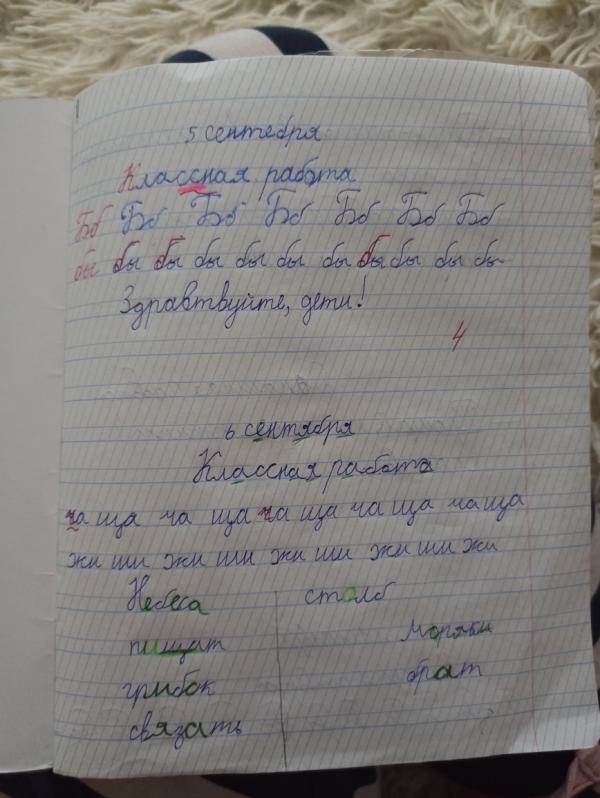 5 сентебря
Классная работа
Бб Бб Бб Бб Бб Бб Бб
бы бы бы бы бы бы бы бы бы бы бы
Здравтвуйте, дети!
4
6 сентября
Классная работа
ча ща ча ща ча ща ча ща ча ща
жи ши жи ши жи ши жи ши жи
Небеса столб
пищат моряки
грибок брат
связать